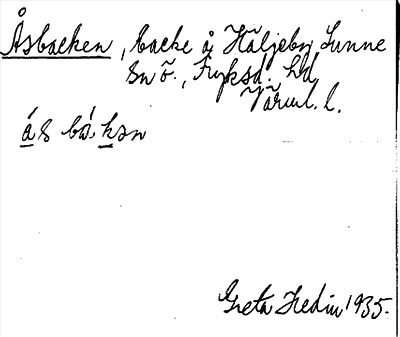 Åsbacken, backe å Häljeby, Sunne
sn ö., Fryksd. hd,
Värml. l.
ás bá̀ksn
Greta Hedin 1935.